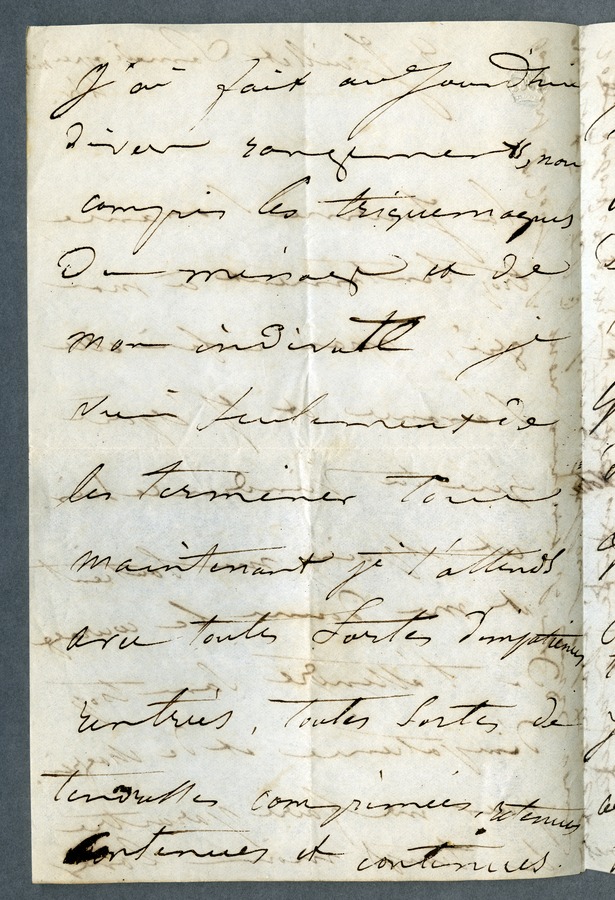 J'ai fait aujourd'hui
divers rangements, non
compris les
du ménage et de
mon individu je
viens seulement de
les terminer tous
maintenant je t'attends
avec toutes sortes d'impatiences
rentrées, toutes sortes de
tendresses comprimées, retenues
contenues et continues.